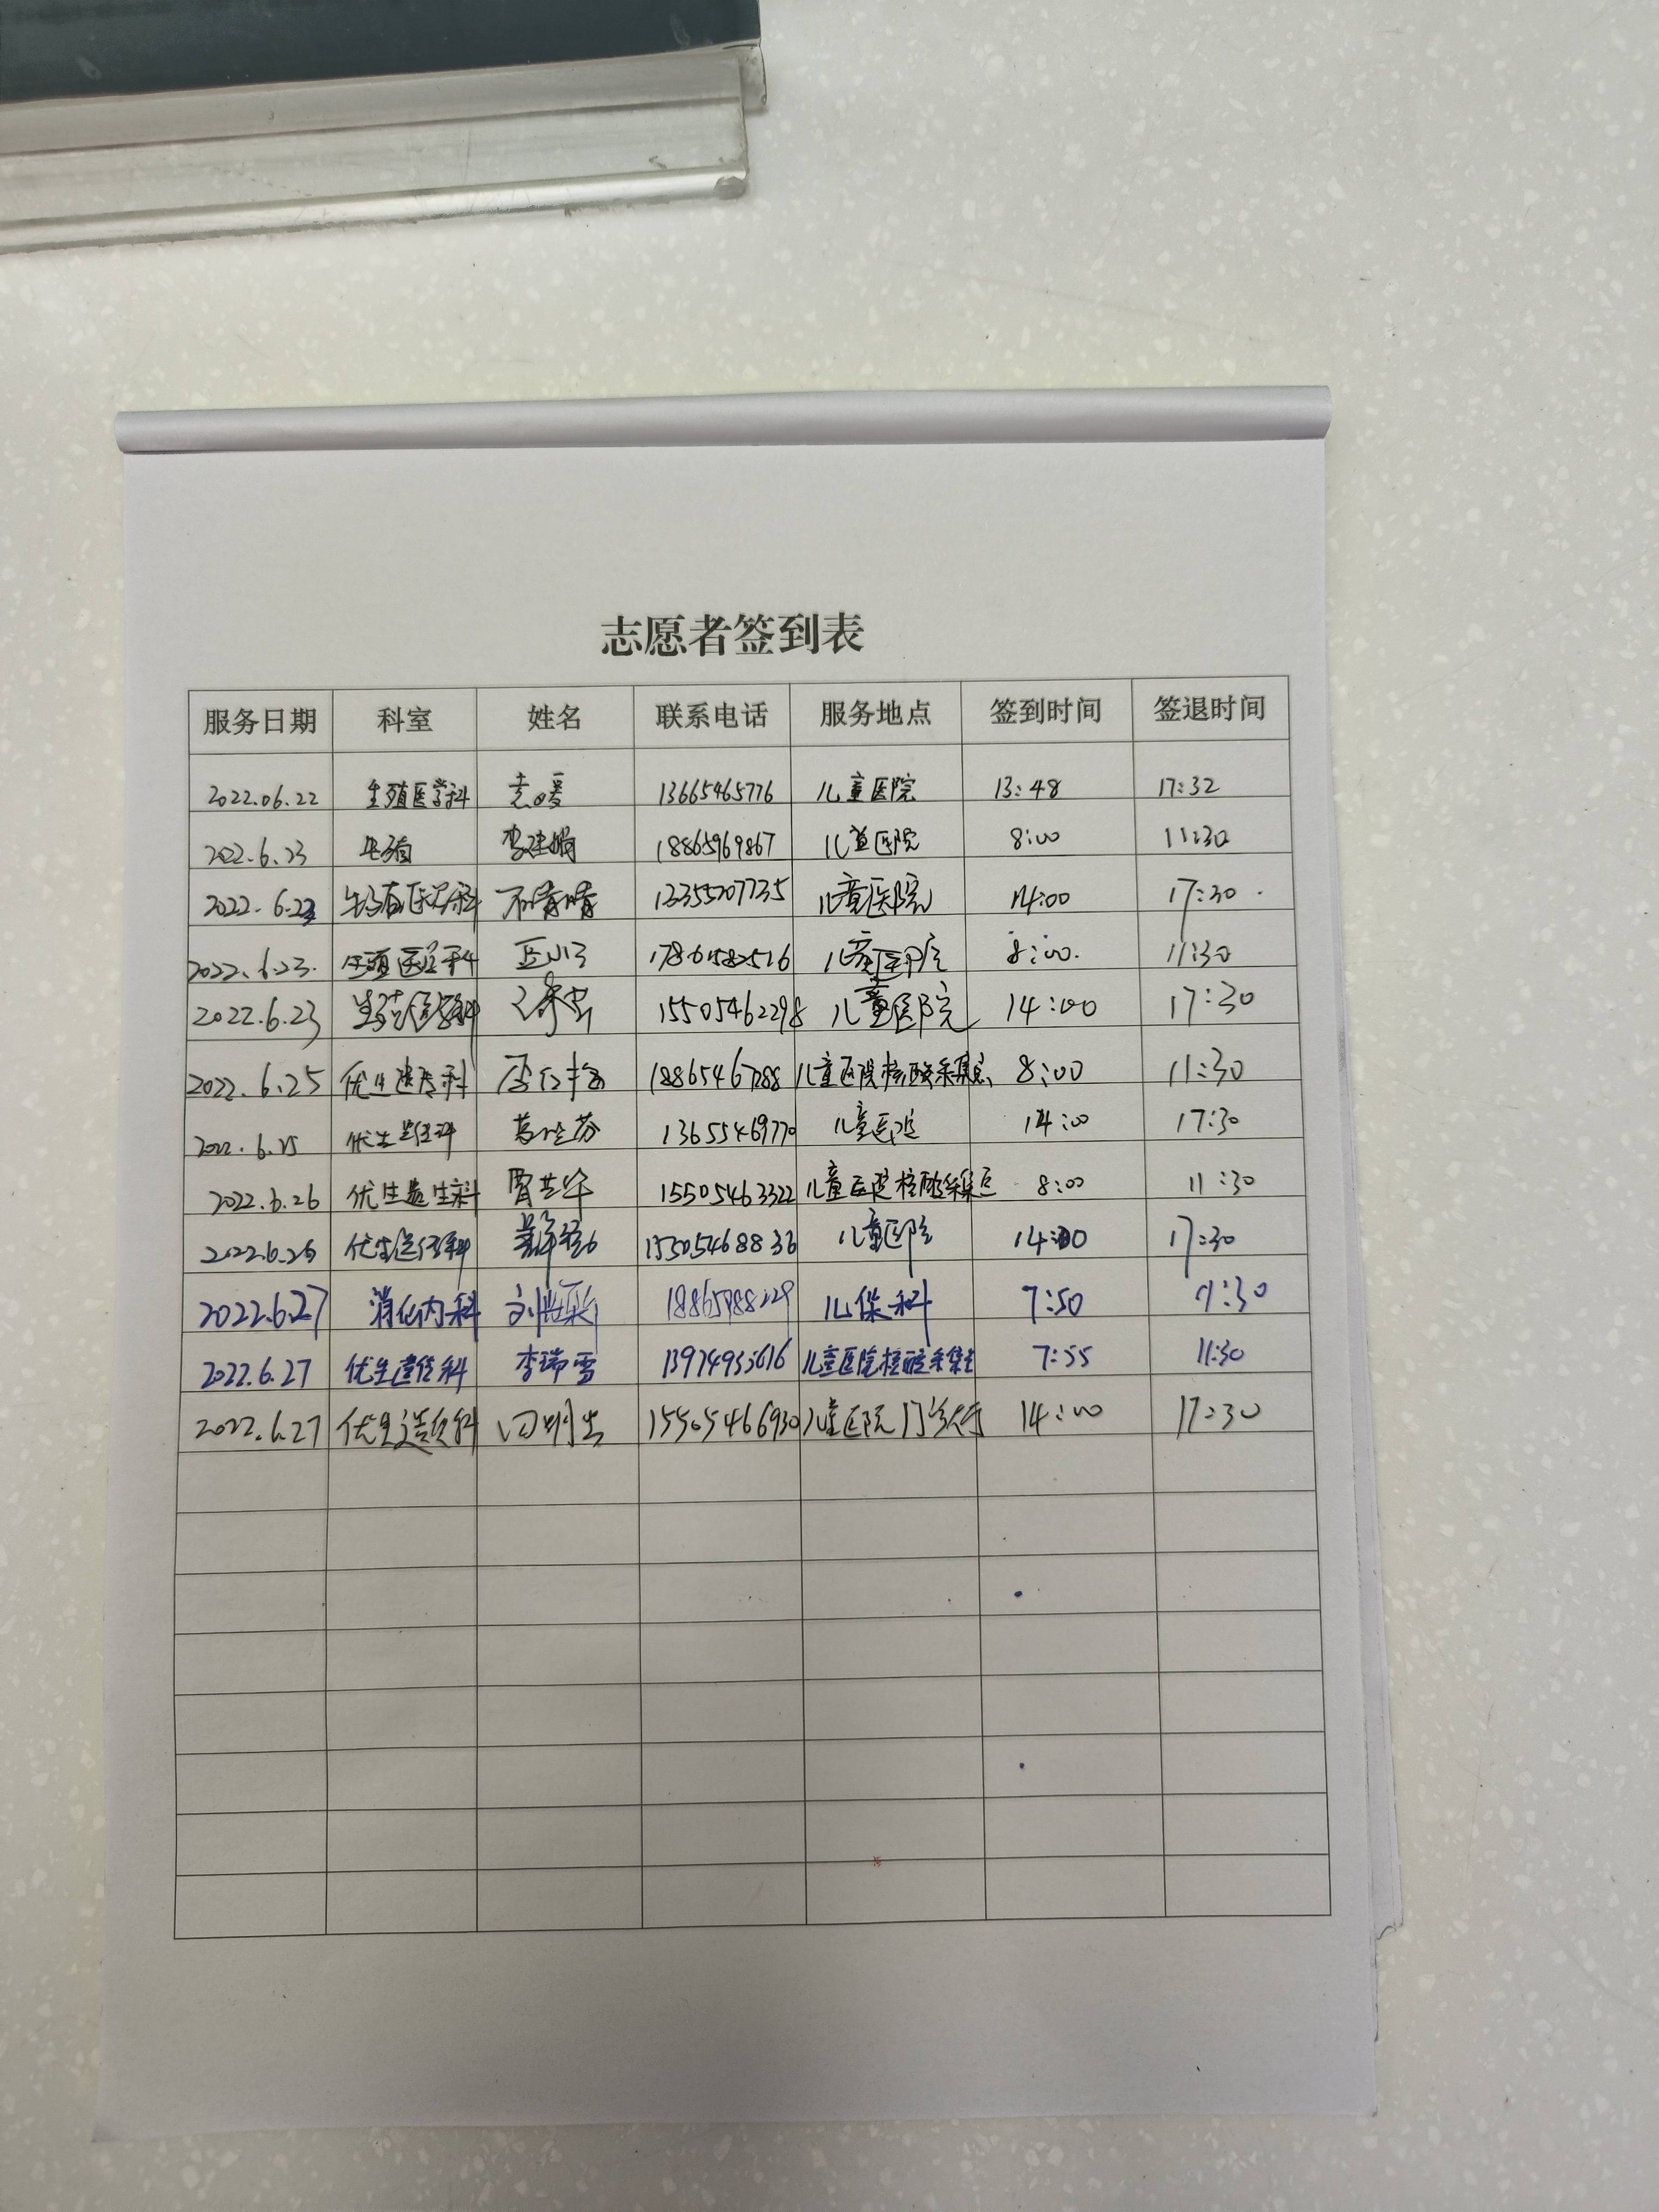 志愿者签到表
服务日期 科室 姓名 联系电话 服务地点 签到时间 签退时间
2022.06.22 生殖医学科 袁暖 13665465776 儿童医院 13:48 17:32
2022.6.23 生殖 李建娟 18865969867 儿童医院 8:00 11:30
2022.6.23 生殖医学科 13355207735 儿童医院 14:00 17:30
2022.6.23. 生殖医学科 儿童医院 8:00. 11:30
2022.6.23 生殖医学科 15505462298 儿童医院 14:00 17:30
2022.6.25 优生遗传科 儿童医院核酸采集点 8:00 11:30
2022.6.25 优生遗传科 13655469770 儿童医院 14:00 17:30
2022.6.26 优生遗传科 15505463322 儿童医院核酸采集点 8:00 11:30
2022.6.26 优生遗传科 儿童医院 14:00 17:30
2022.6.27 消化内科 儿保科 7:50 11:30
2022.6.27 优生遗传科 李瑞雪 儿童医院核酸采集点 7:55 11:30
2022.6.27 优生遗传科 15505466930 儿童医院门诊大厅 14:00 17:30